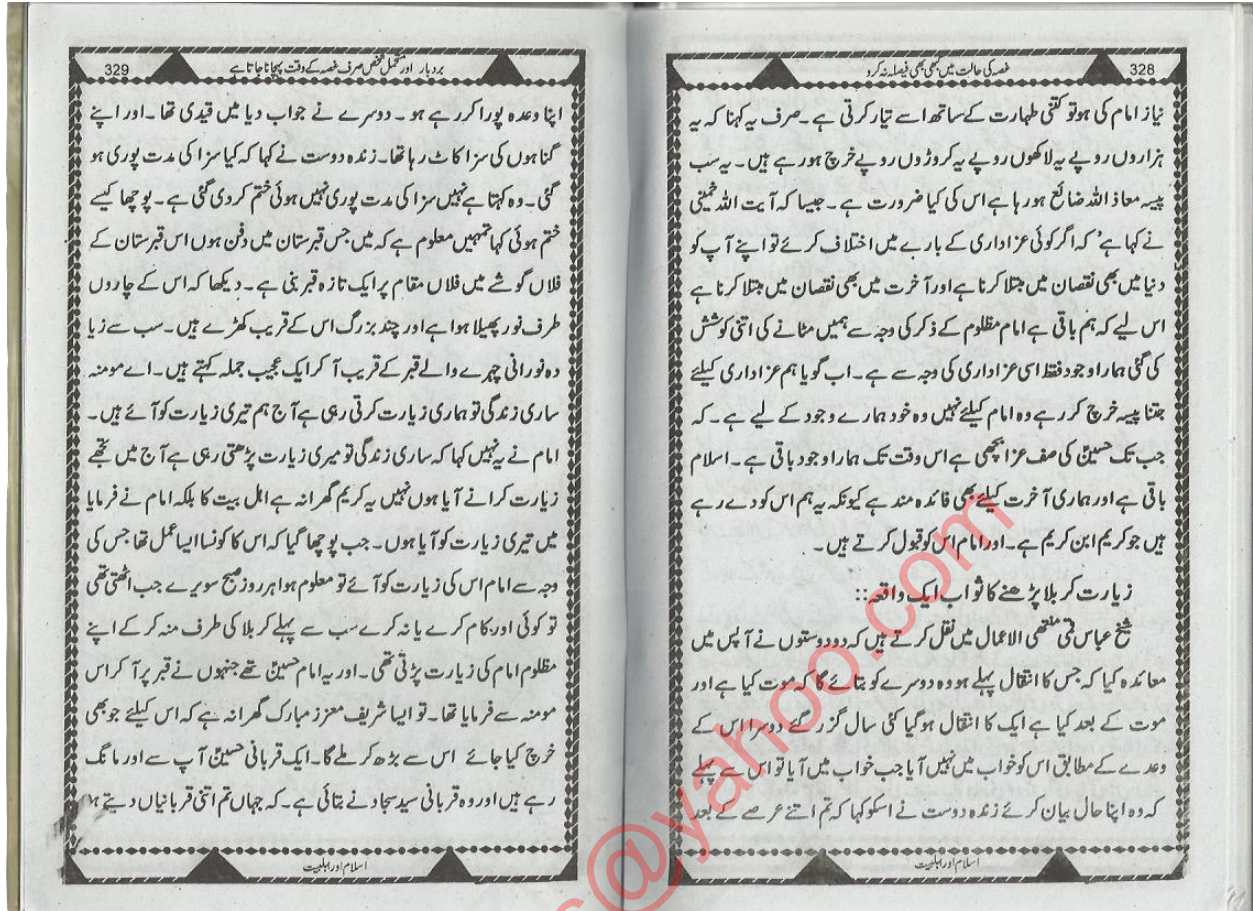 328
غصہ کی حالت میں کبھی بھی فیصلہ نہ کرو
نیاز امام کی ہو تو کتنی طہارت کے ساتھ اسے تیار کرتی ہے۔ صرف یہ کہنا کہ یہ
ہزاروں روپے یہ لاکھوں روپے یہ کروڑوں روپے خرچ ہو رہے ہیں۔ یہ سب
پیسہ معاذ اللہ ضائع ہو رہا ہے اس کی کیا ضرورت ہے۔ جیسا کہ آیت اللہ خمینی
نے کہا ہے' کہ اگر کوئی عزاداری کے بارے میں اختلاف کرئے تو اپنے آپ کو
دنیا میں بھی نقصان میں مبتلا کرنا ہے اور آخرت میں بھی نقصان میں مبتلا کرنا ہے
اس لیے کہ ہم باقی ہے امام مظلوم کے ذکر کی وجہ سے ہمیں مٹانے کی اتنی کوشش
کی گئی ہمارا وجود فقط اسی عزاداری کی وجہ سے ہے۔ اب گویا ہم عزاداری کیلئے
جتنا پیسہ خرچ کر رہے وہ امام کیلئے نہیں وہ خود ہمارے وجود کے لیے ہے۔ کہ
جب تک حسینؑ کی صف عزا بچھی ہے اس وقت تک ہمارا وجود باقی ہے۔ اسلام
باقی ہے اور ہماری آخرت کیلئے بھی فائدہ مند ہے کیونکہ یہ ہم اس کو دے رہے
ہیں جو کریم ابن کریم ہے۔ اور امام اس کو قبول کرتے ہیں۔
زیارت کربلا پڑھنے کا ثواب ایک واقعہ::
شیخ عباس قمی منتھی الاعمال میں نقل کرتے ہیں کہ دو دوستوں نے آپس میں
معائدہ کیا کہ جس کا انتقال پہلے ہو وہ دوسرے کو بتائے گا کہ موت کیا ہے اور
موت کے بعد کیا ہے ایک کا انتقال ہو گیا کئی سال گزر گئے دوسرا اس کے
وعدے کے مطابق اس کو خواب میں نہیں آیا جب خواب میں آیا تو اس سے پہلے
کہ وہ اپنا حال بیان کرئے زندہ دوست نے اسکو کہا کہ تم اتنے عرصے کے بعد
اسلام اور اہلبیت
بردبار اور متحمل شخص صرف غصہ کے وقت پہچانا جاتا ہے
329
اپنا وعدہ پورا کر رہے ہو۔ دوسرے نے جواب دیا میں قیدی تھا۔ اور اپنے
گناہوں کی سزا کاٹ رہا تھا۔ زندہ دوست نے کہا کہ کیا سزا کی مدت پوری ہو
گئی۔ وہ کہتا ہے نہیں سزا کی مدت پوری نہیں ہوئی ختم کر دی گئی ہے۔ پوچھا کیسے
ختم ہوئی کہا تمہیں معلوم ہے کہ میں جس قبرستان میں دفن ہوں اس قبرستان کے
فلاں گوشے میں فلاں مقام پر ایک تازہ قبر بنی ہے۔ دیکھا کہ اس کے چاروں
طرف نور پھیلا ہوا ہے اور چند بزرگ اس کے قریب کھڑے ہیں۔ سب سے زیا
دہ نورانی چہرے والے قبر کے قریب آ کر ایک عجیب جملہ کہتے ہیں۔ اے مومنہ
ساری زندگی تو ہماری زیارت کرتی رہی ہے آج ہم تیری زیارت کو آئے ہیں۔
امام نے یہ نہیں کہا کہ ساری زندگی تو میری زیارت پڑھتی رہی ہے آج میں تجھے
زیارت کرانے آیا ہوں نہیں یہ کریم گھرانہ ہے اہل بیت کا بلکہ امام نے فرمایا
میں تیری زیارت کو آیا ہوں۔ جب پوچھا گیا کہ اس کا کونسا ایسا عمل تھا جس کی
وجہ سے امام اس کی زیارت کو آئے تو معلوم ہوا ہر روز صبح سویرے جب اٹھتی تھی
تو کوئی اور کام کرے یا نہ کرے سب سے پہلے کربلا کی طرف منہ کر کے اپنے
مظلوم امام کی زیارت پڑتی تھی۔ اور یہ امام حسینؑ تھے جنہوں نے قبر پر آ کر اس
مومنہ سے فرمایا تھا۔ تو ایسا شریف معزز مبارک گھرانہ ہے کہ اس کیلئے جو بھی
خرچ کیا جائے اس سے بڑھ کر ملے گا۔ ایک قربانی حسینؑ آپ سے اور مانگ
رہے ہیں اور وہ قربانی سید سجاد نے بتائی ہے۔ کہ جہاں تم اتنی قربانیاں دیتے ہو
اسلام اور اہلبیت
s@yahoo.com